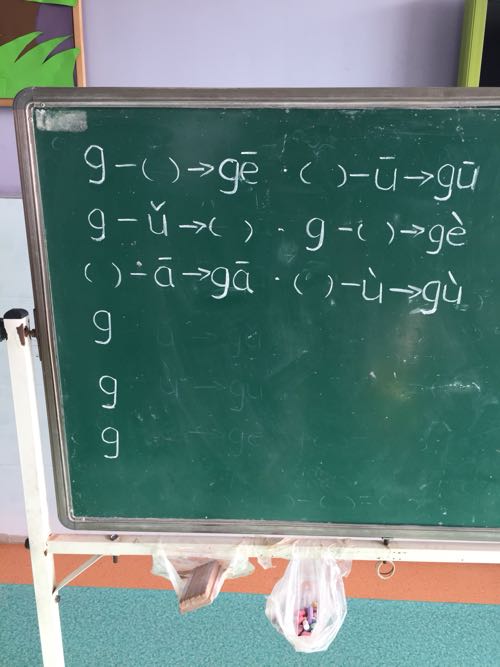 g-( )→gē · ( )-ū→gū
g-ǔ→( ) · g-( )→gè
( )-ā→gā · ( )-ù→gù
g
g
g